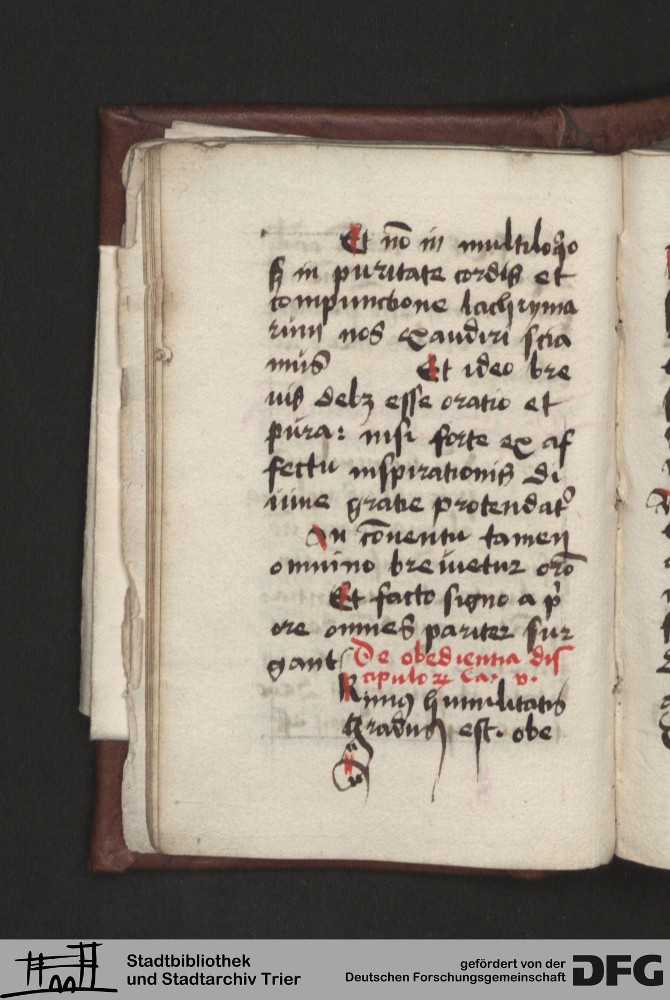 Et nō in multiloq̇o
ſʒ in puritate cordis et
compunctione lachryma
rum nos exaudiri scia
mus Et ideo bre
uis debꝫ esse oratio et
pura: nisi forte ex af
fectu inspirationis di
uine gratie protendat᷑
In cōuentu tamen
omnino breuietur orō
Et facto signo a p̄
ore omnes pariter sur
gant De obedientia dis
cipuloꝝ Ca. v.
Rimꝰ humilitatis
Gradus est. obe
Stadtbibliothek
und Stadtarchiv Trier
gefördert von der
Deutschen Forschungsgemeinschaft
DFG